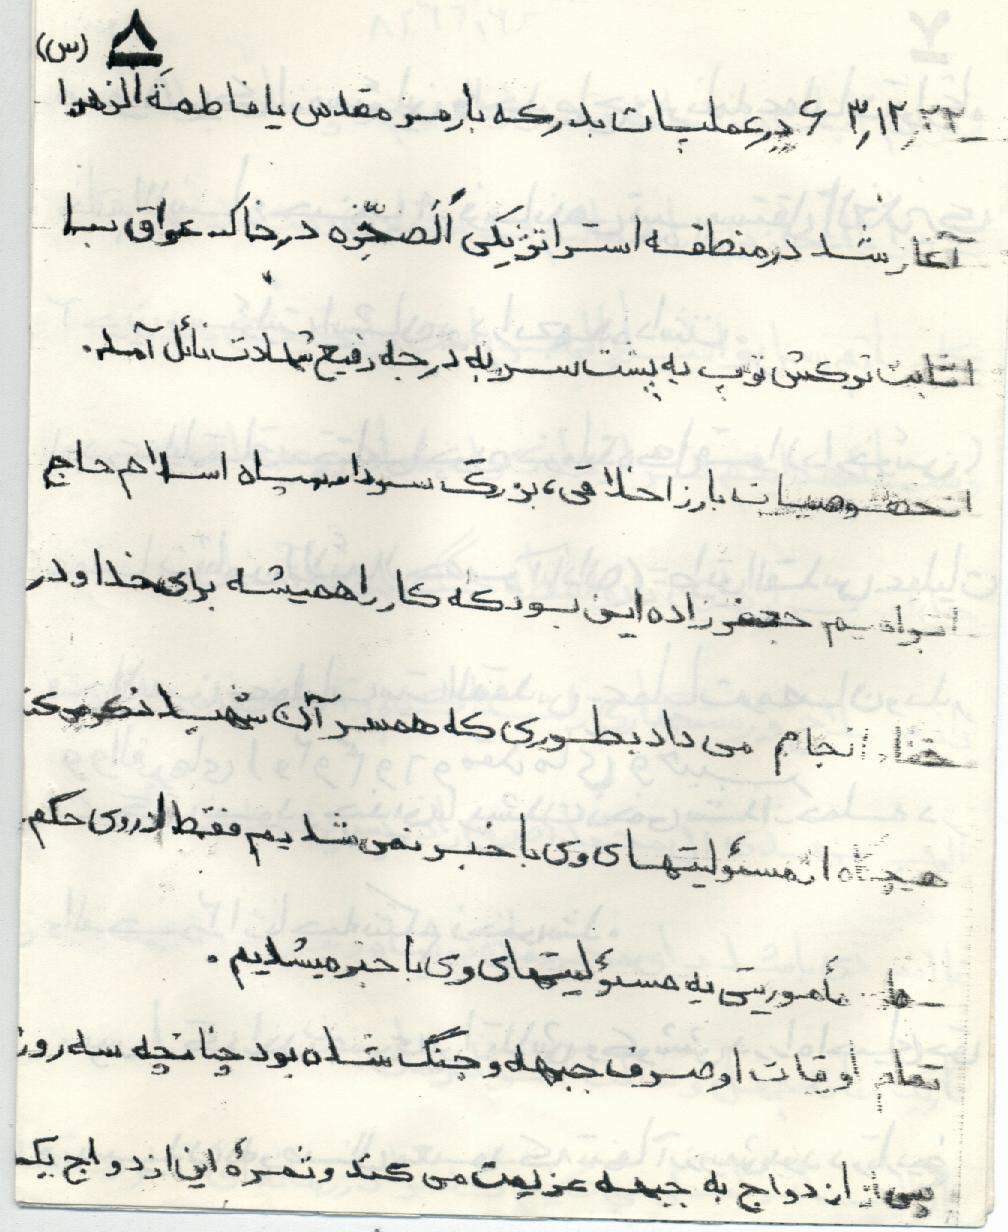 ۸
(س)
۶۳,۱۲,۲۲ درعملیات بدر که بارمز مقدس یا فاطمةالزهرا
آغاز شد در منطقه استراتژیکی الصخره در خاک عراق بدا
اثابت ترکش توپ به پشت سر به درجه رفیع شهادت نائل آمد.
ازخصوصیات بارز اخلاقی، بزرگ سردار سپاه اسلام حاج
ابراهیم جعفرزاده این بود که کار را همیشه برای خدا و در
خفاء انجام می داد بطوری که همسر آن شهید ذکر می کند
هیچگاه از مسئولیتهای وی با خبر نمی شدیم فقط از روی حکم
مأموریتی به مسئولیتهای وی با خبر میشدیم .
تمام اوقات او صرف جبهه و جنگ شده بود چنانچه سه روز
پس از ازدواج به جبهه عزیمت می کند و ثمرهٔ این ازدواج یک